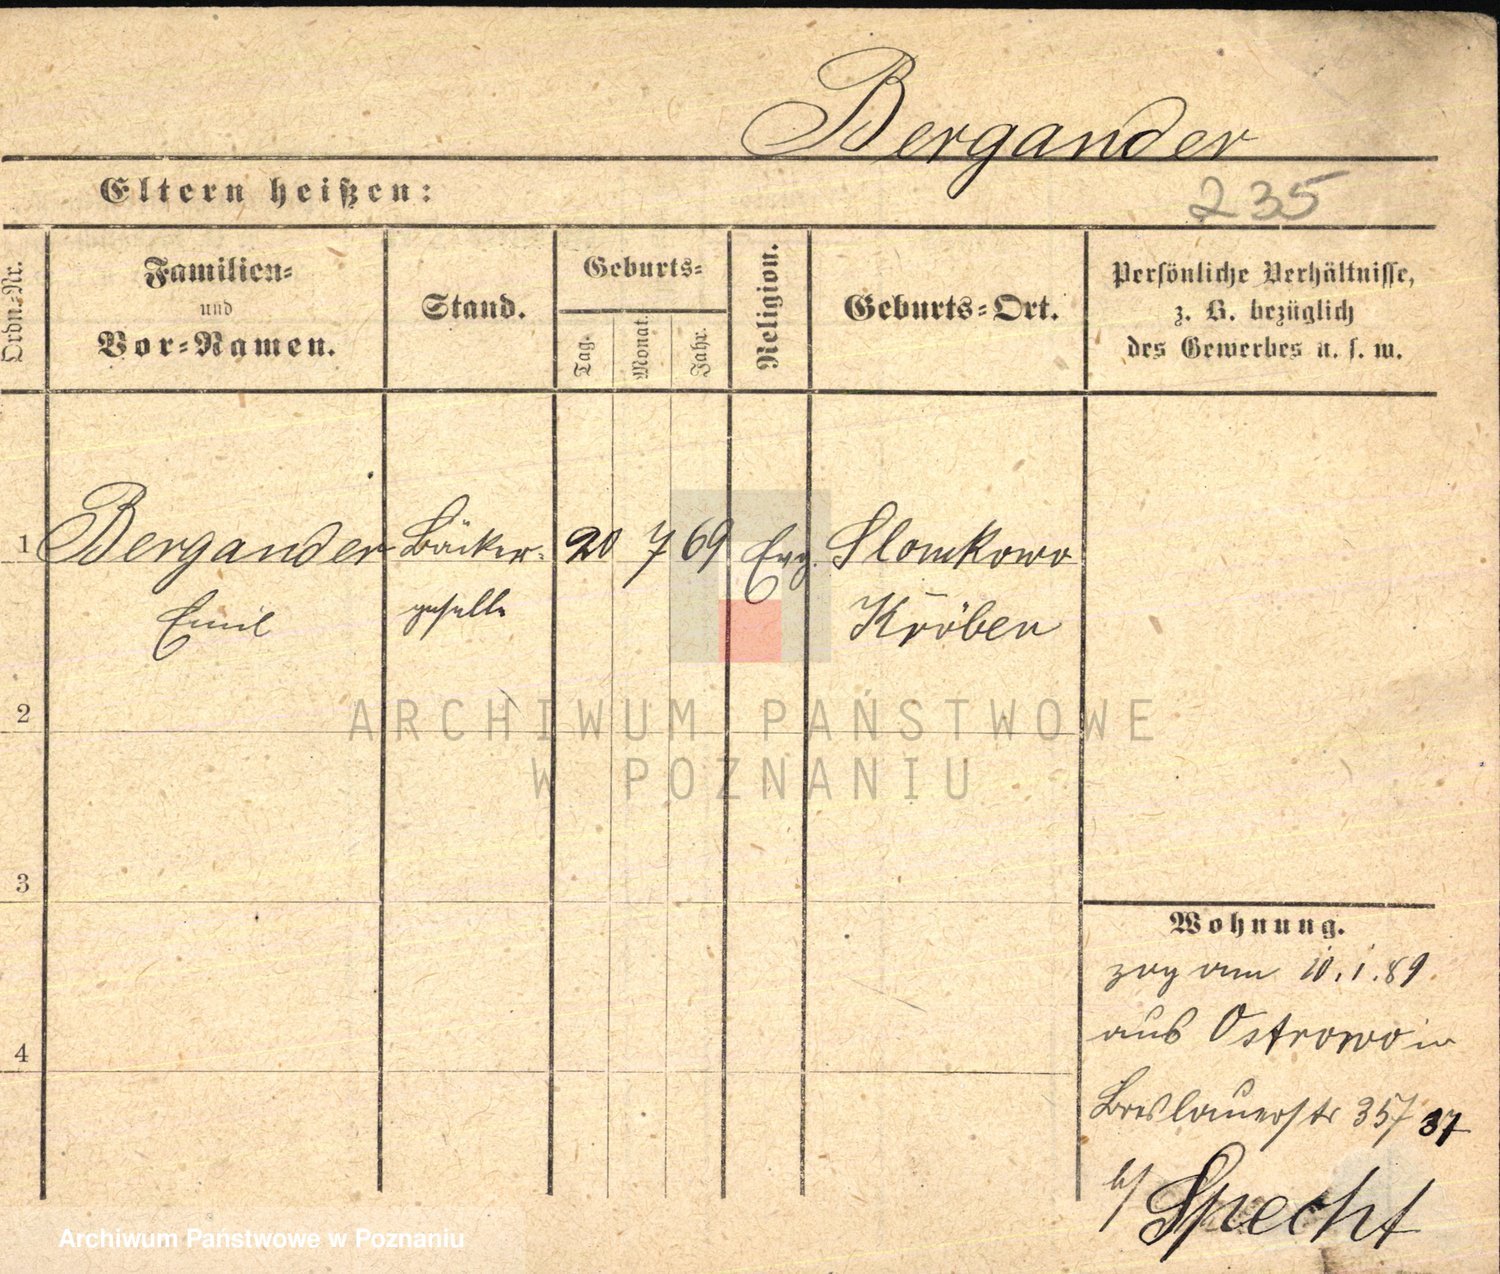 Bergander
Eltern heißen:
235
Ordn.-Nr.
Familien-
und
Vor-Namen.
Stand.
Geburts-
Tag.
Monat.
Jahr.
Religion.
Geburts-Ort.
Persönliche Verhältnisse,
z. B. bezüglich
des Gewerbes u. s. w.
1 Bergander Bäcker- 20 7 69 Evg. Slomkowo
Emil geselle Kröben
2
ARCHIWUM PAŃSTWOWE
W POZNANIU
3
Wohnung.
zog am 10.1.89
4
aus Ostrowo in
Breslauerstr 357 37
b/ Specht
Archiwum Państwowe w Poznaniu